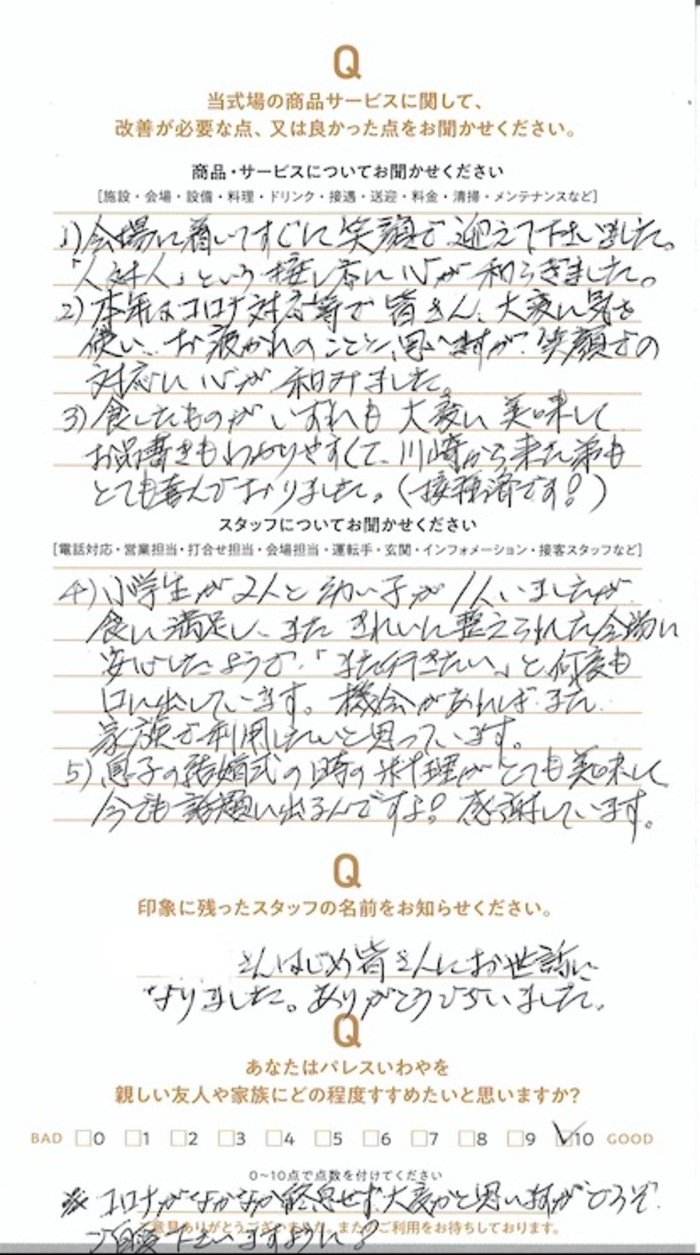 Q
当式場の商品サービスに関して、
改善が必要な点、又は良かった点をお聞かせください。
商品・サービスについてお聞かせください
[施設・会場・設備・料理・ドリンク・接遇・送迎・料金・清掃・メンテナンスなど]
1)会場に着いてすぐに笑顔で迎えて下さいました。
「人対人」という接し方に心が和らぎました。
2)本年はコロナ対応等で皆さん、大変に気を
使い、お疲れのことと思いますが、笑顔での
対応に心が和みました。
3)食したものがいずれも大変に美味しく
お品書きもわかりやすくて、川崎から来た弟も
とても喜んでおりました。(接種済です!)
スタッフについてお聞かせください
[電話対応・営業担当・打合せ担当・会場担当・運転手・玄関・インフォメーション・接客スタッフなど]
4)小学生が2人と幼い子が1人いましたが
食に満足し、また きれいに整えられた会場に
安心したようで、「また行きたい」と何度も
口に出しています。機会があれば また
家族で利用したいと思っています。
5)息子の結婚式の時の料理がとても美味しく
今でも話題に出るんですよ!感謝しています。
Q
印象に残ったスタッフの名前をお知らせください。
さんはじめ皆さんにお世話に
なりました。ありがとうございました。
Q
あなたはパレスいわやを
親しい友人や家族にどの程度すすめたいと思いますか?
BAD □0 □1 □2 □3 □4 □5 □6 □7 □8 □9 ☑10 GOOD
0〜10点で点数を付けてください
※ コロナがなかなか終息せず大変かと思いますがどうぞ
ご意見ありがとうございました。またのご利用をお待ちしております。
ご自愛下さいますように!